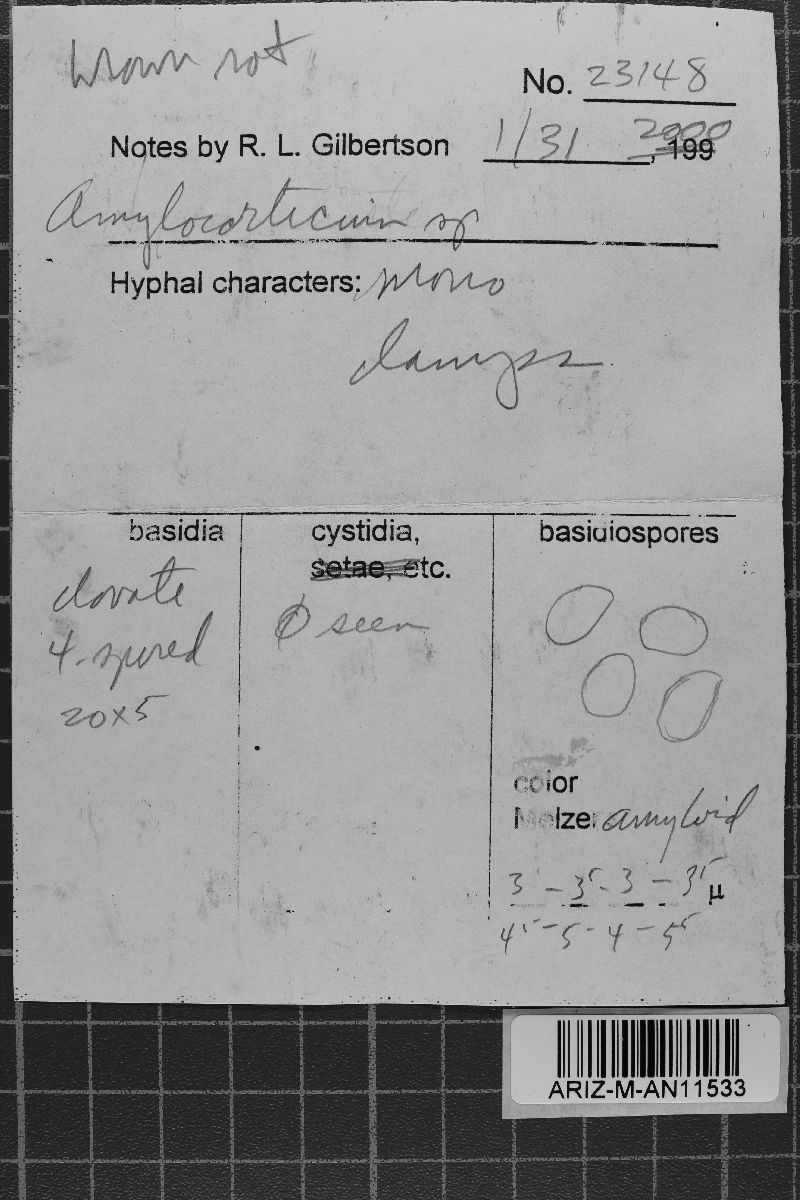 brown rot
No. 23148
Notes by R. L. Gilbertson 1/31 2000, 199
Amylocorticium sp
Hyphal characters: mono
clamps
basidia
clavate
4-spored
20x5
cystidia,
setae, etc.
Ø seen
basidiospores
color
Melzer amyloid
3 - 3⁵ - 3 - 3⁵ µ
4⁵ - 5 - 4 - 5⁵
ARIZ-M-AN11533